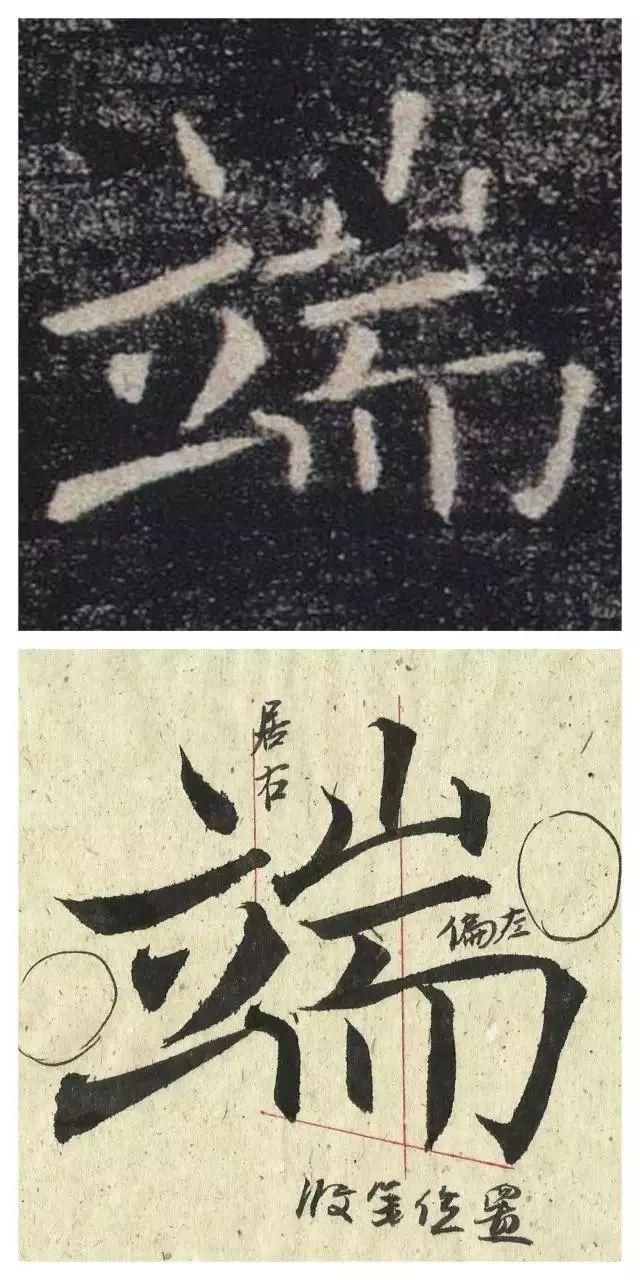 端
居右
端
偏左
收笔位置